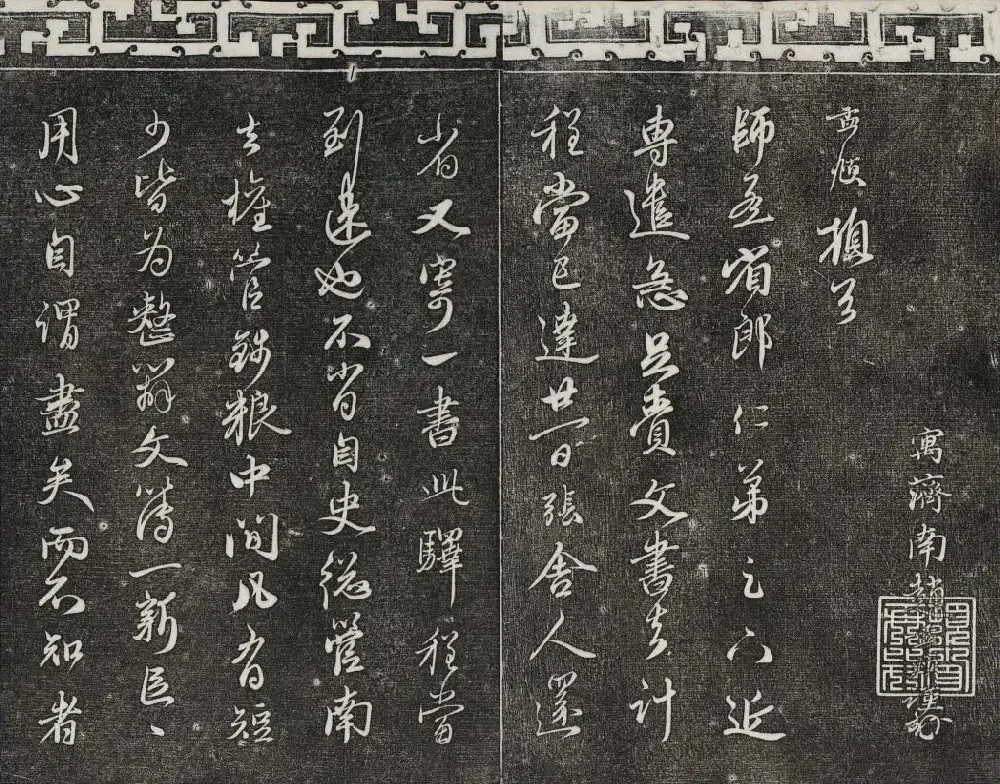 寓濟南趙孟頫謹封
孟頫頓首
師孟省郎仁弟足下近
專遣急足賫文書去計
程當已達廿日張舍人還
省又寄一書此驛程當
到遲也不肖自史總管南
去權管錢粮中間凡有短
少皆為整辦文簿一新區〻
用心自謂盡矣而不知者